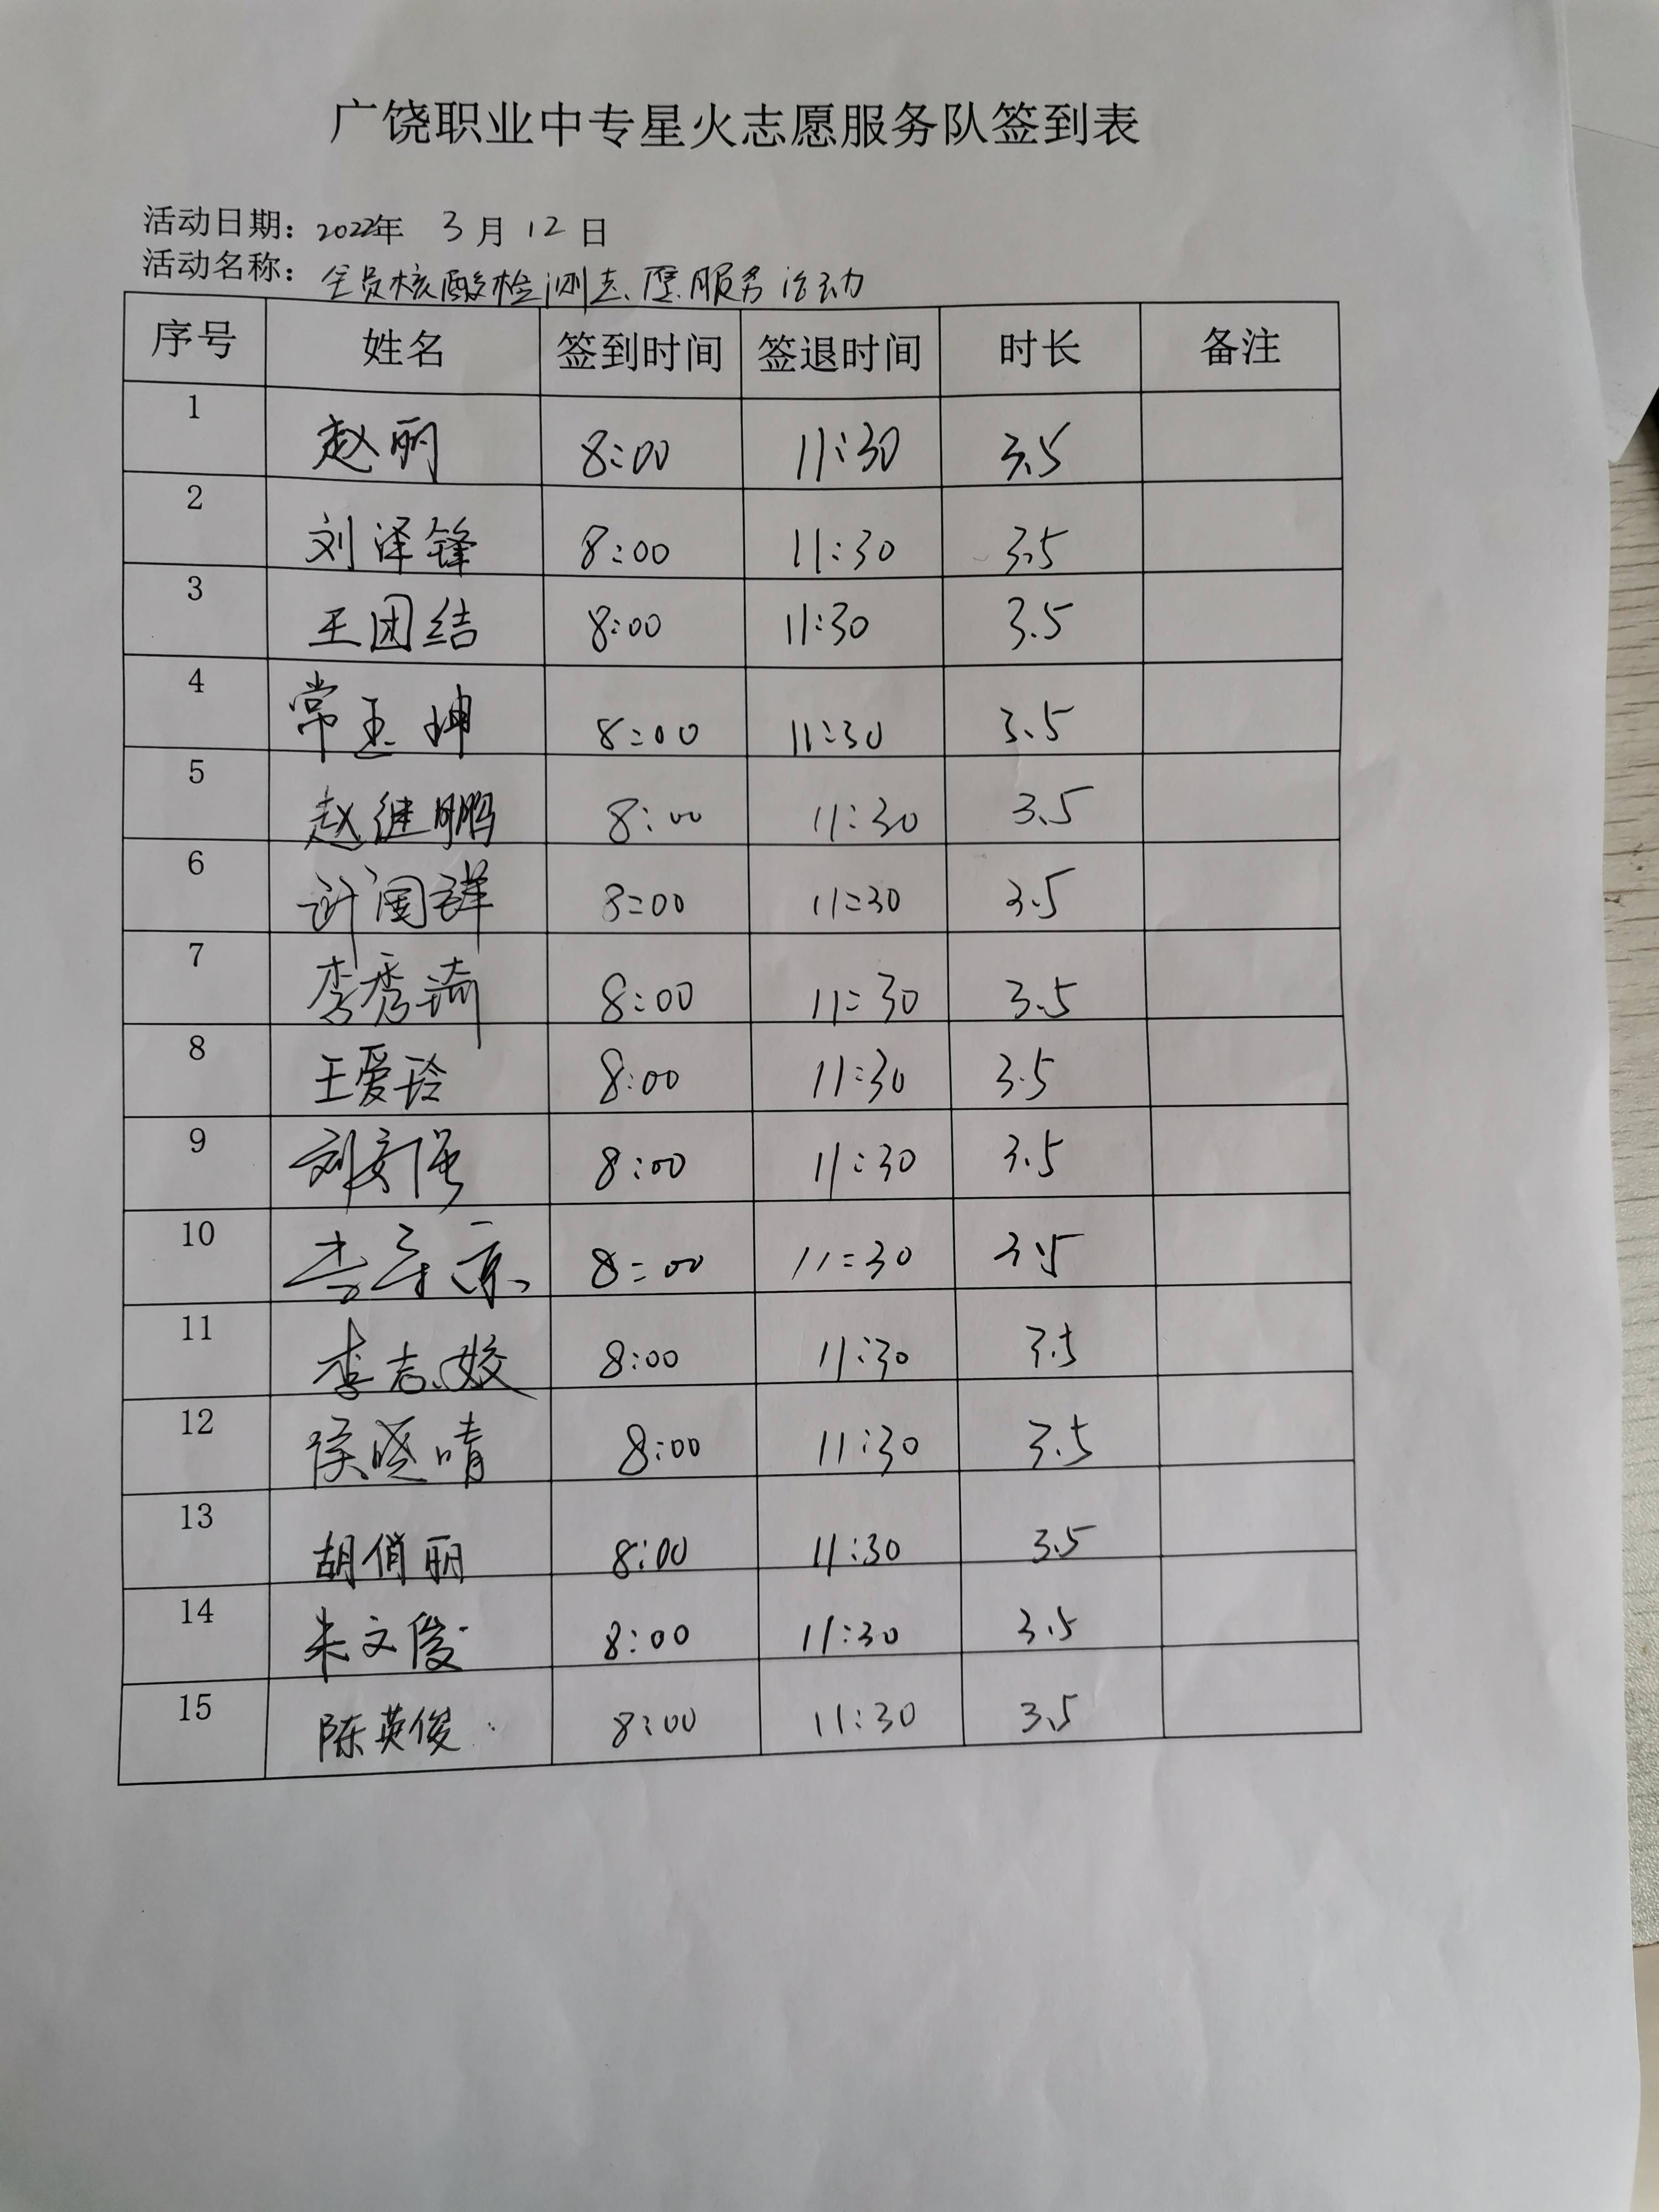 广饶职业中专星火志愿服务队签到表
活动日期：2022年 3月12日
活动名称：全员核酸检测志愿服务活动
序号 姓名 签到时间 签退时间 时长 备注
1 赵丽 8:00 11:30 3.5
2 刘泽锋 8:00 11:30 3.5
3 王团结 8:00 11:30 3.5
4 常玉坤 8:00 11:30 3.5
5 赵继鹏 8:00 11:30 3.5
6 8:00 11:30 3.5
7 李秀琦 8:00 11:30 3.5
8 王爱玲 8:00 11:30 3.5
9 8:00 11:30 3.5
10 8:00 11:30 3.5
11 李志姣 8:00 11:30 3.5
12 侯晓晴 8:00 11:30 3.5
13 胡俏丽 8:00 11:30 3.5
14 朱文俊 8:00 11:30 3.5
15 陈英俊 8:00 11:30 3.5